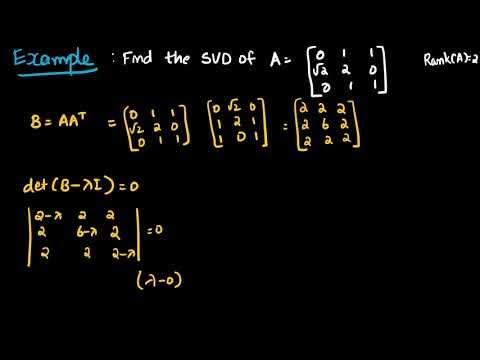 Example : Find the SVD of A = [0 1 1; √2 2 0; 0 1 1] Rank(A)=2
B = AAᵀ = [0 1 1; √2 2 0; 0 1 1] [0 √2 0; 1 2 1; 1 0 1] = [2 2 2; 2 6 2; 2 2 2]
det(B-λI) = 0
|2-λ 2 2; 2 6-λ 2; 2 2 2-λ| = 0
(λ-0)